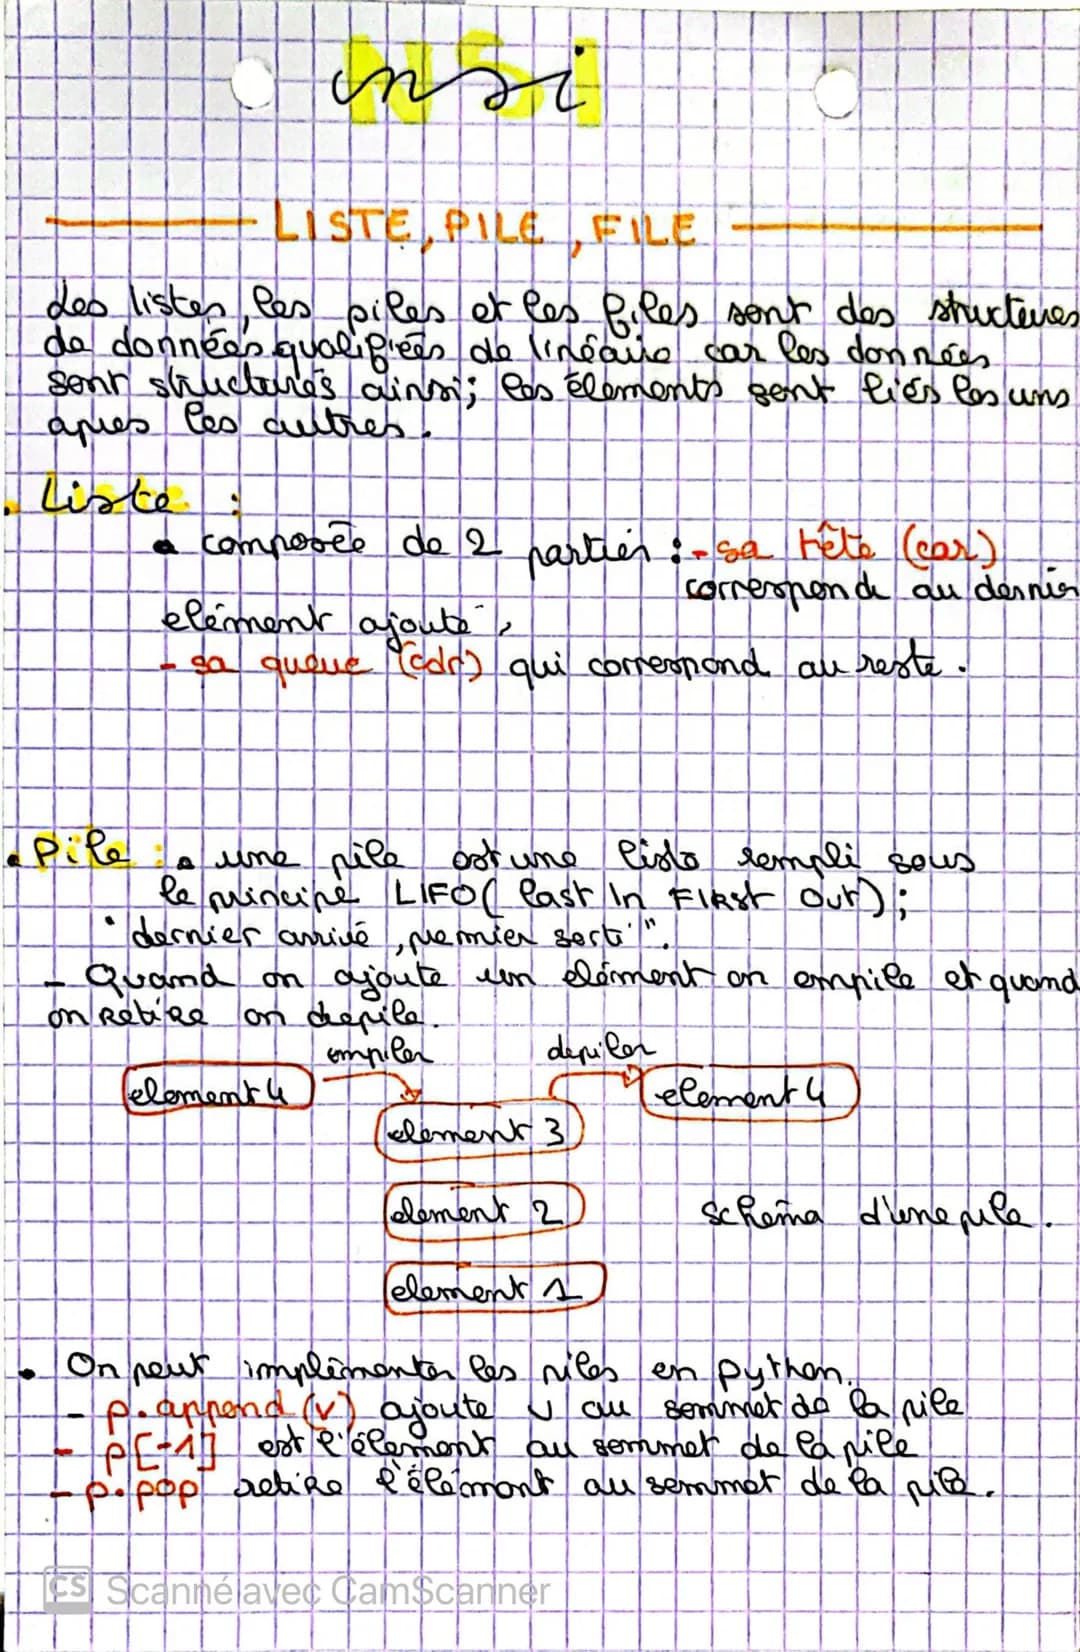 nsi
LISTE, PILE, FILE
Les listes, les piles et les files sont des structures
de données qualifiées de linéaire car les données
sont structurés ainsi; les élements sont liés les uns
apres les autres.
• Liste :
• composée de 2 parties : - sa tête (car)
correspond au dernier
elément ajouté,
- sa queue (cdr) qui correspond au reste.
• Pile : • une pile est une liste rempli sous
le principe LIFO( last In FIRst Out);
"dernier arrivé, premier sorti".
- Quand on ajoute un elément on empile et quand
on Retire on depile.
empiler depiler
element 4 element 4
element 3
element 2 schéma d'une pile.
element 1
• On peut implémenter les piles en python.
- p.append(v) ajoute v au sommet de la pile
- p[-1] est l'élement au sommet de la pile
- p.pop retire l'élément au sommet de la pile.
CS Scanné avec CamScanner